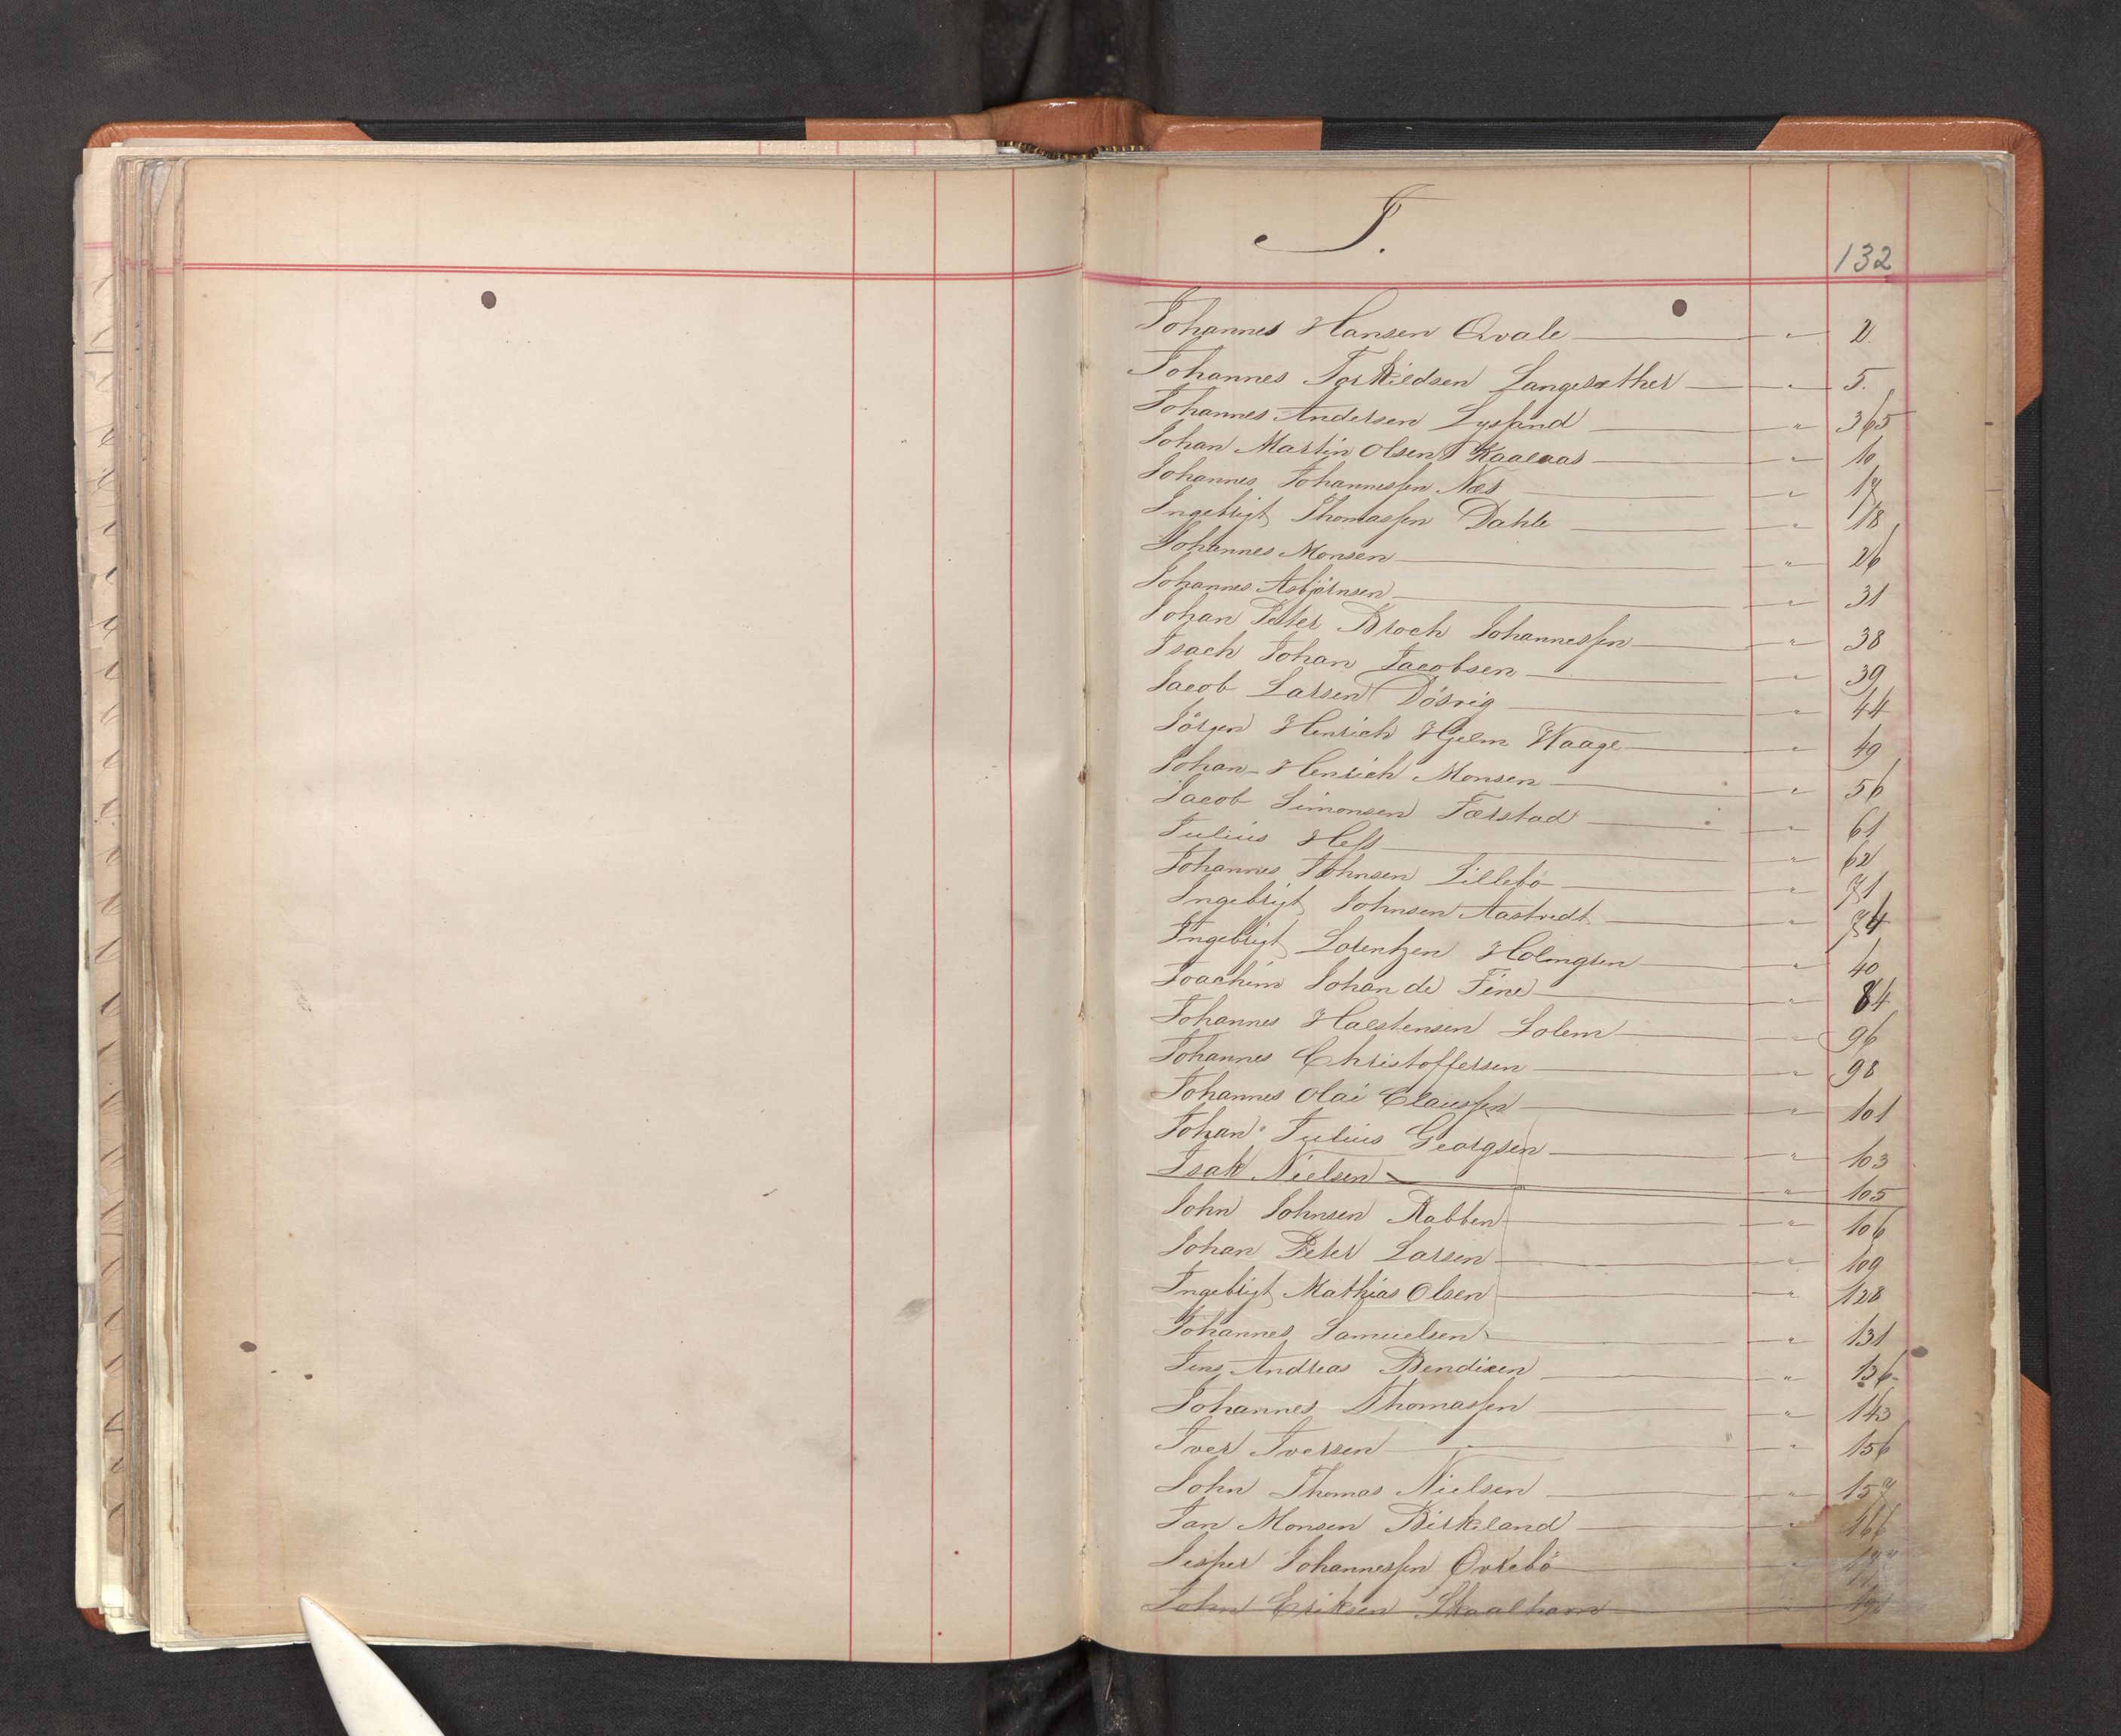 J.
132
Johannes Hansen Qvale — " — 2.
Johannes Torkildsen Langesæther — " — 5.
Johannes Andersen Lysland — " — 365
Johan Martin Olsen Kaalaas — " — 10
Johannes Johannessen Næs — " — 17
Ingebrigt Thomassen Dahle — " — 18
Johannes Monsen — " — 26
Johannes Asbjörnsen — " — 31
Johan Peter Broch Johannessen — " — 38
Isach Johan Jacobsen — " — 39
Jacob Larsen Dösvig — " — 44
Jörgen Henrich Hjelm Waage — " — 49
Johan Henrich Monsen — " — 56
Jacob Simonsen Færstad — " — 61
Julius Hess — " — 62
Johannes Johnsen Lillebø — " — 71
Ingebrigt Johnsen Aastvedt — " — 74
Ingebrigt Lorentzen Holmgren — " — 40
Joachim Johan de Fine — " — 84
Johannes Halstensen Solem — " — 96
Johannes Christoffersen — " — 98
Johannes Olai Claussen — " — 101
Johan Julius Georgsen — " — 103
Isak Nielsen — " — 105
John Johnsen Rabben — " — 106
Johan Peter Larsen — " — 109
Ingebrigt Mathias Olsen — " — 128
Johannes Samuelsen — " — 131
Jens Andreas Bendixen — " — 136
Johannes Thomassen — " — 143
Iver Iversen — " — 156
John Thomas Nielsen — " — 157
Jan Monsen Birkeland — " — 166
Jesper Johannessen Övrebö — "
John Eriksen Skaalham